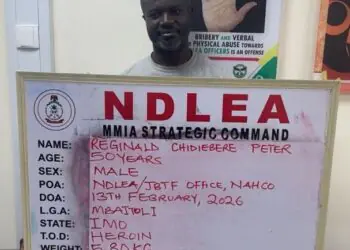 BRIBERY AND VERBAL
PHYSICAL ABUSE TOWARDS
OFFICERS IS AN OFFENSE
NDLEA
MMIA STRATEGIC COMMAND
NAME: REGINALD CHIDIEBERE PETER
AGE: 50 YEARS
SEX: MALE
POA: NDLEA/JBTF OFFICE, NAHCO
DOA: 13TH FEBRUARY, 2026
L.G.A: MBAITOLI
STATE: IMO
T.O.D: HEROIN
WEIGHT: